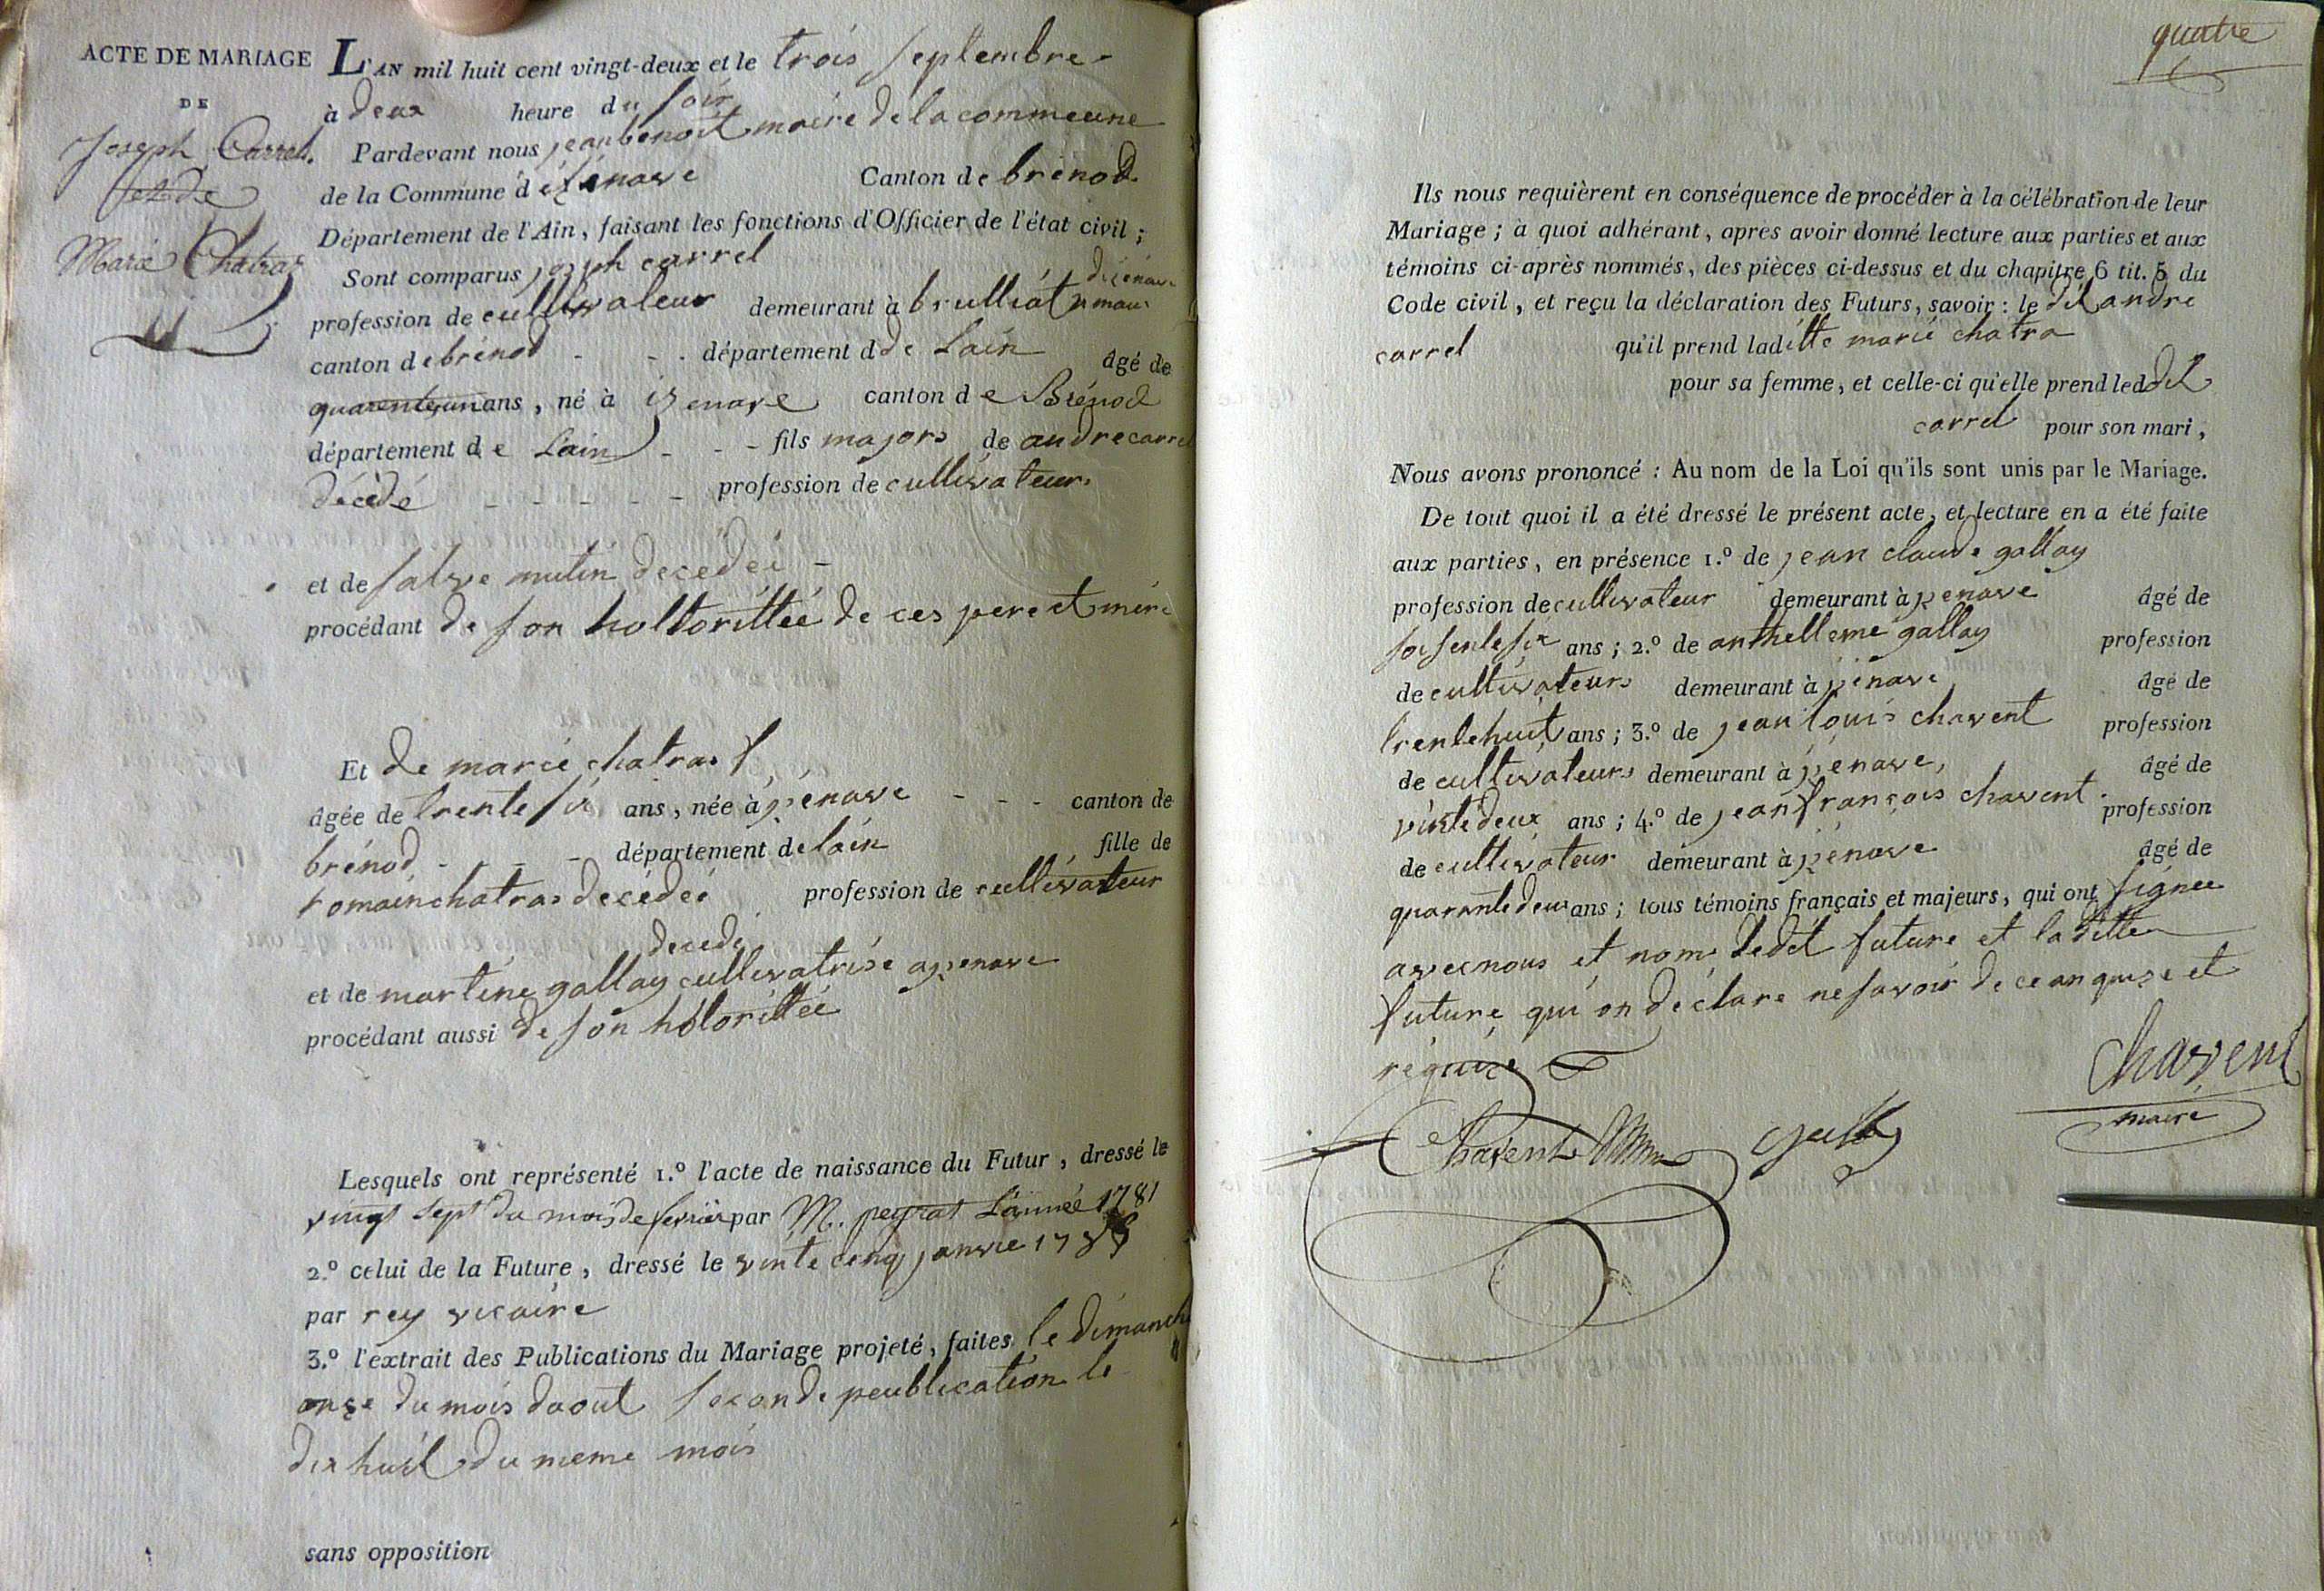 ACTE DE MARIAGE
DE
Joseph Carrel.
et de
Marie Chatraz
L'AN mil huit cent vingt-deux et le trois Septembre -
à deux heure du Soir
Pardevant nous jean benoit maire de la commeune
de la Commune d'izénave Canton de brénod
Département de l'Ain, faisant les fonctions d'Officier de l'état civil ;
Sont comparus joseph carrel
profession de cultivateur demeurant à brulliat
canton de brénod - - - département d de Lain âgé de
quarenteun ans, né à izenave canton de Brénod
département de Lain - - - fils majors de andre carrel
décédé - - - - - profession de cultivateur.
et de mutin decedéé -
procédant de son holtorittéé de ces pere et mere
Et de marie chatras f
âgée de trente six ans, née à izénave - - - canton de
brénod - - - - département de lain fille de
romain chatras decédéé profession de cultivateur
decede
et de martine gallay cultivatrise a izenave
procédant aussi de son holorittéé
Lesquels ont représenté 1.º l'acte de naissance du Futur, dressé le
vingt sept du mois de fevrier par M. peyrat L'année 1781
2.º celui de la Future, dressé le vinte cenq janvie
par rey vicaire
3.º l'extrait des Publications du Mariage projeté, faites le dimanche
onze du mois daout seconde peublication le
dix huit du meme mois
sans opposition
quatre
Ils nous requièrent en conséquence de procéder à la célébration de leur
Mariage ; à quoi adhérant, apres avoir donné lecture aux parties et aux
témoins ci-après nommés, des pièces ci-dessus et du chapitre 6 tit. 5 du
Code civil, et reçu la déclaration des Futurs, savoir : le dit andre
carrel qu'il prend laditte marie chatra
pour sa femme, et celle-ci qu'elle prend led dit
carrel pour son mari,
Nous avons prononcé : Au nom de la Loi qu'ils sont unis par le Mariage.
De tout quoi il a été dressé le présent acte, et lecture en a été faite
aux parties, en présence 1.º de jean claude gallay
profession de cultivateur demeurant à izenave âgé de
soisente six ans ; 2.º de anthelleme gallay profession
de cultivateurs demeurant à izénave âgé de
trente huit ans ; 3.º de jean louis chavent profession
de cultivateurs demeurant à izénave, âgé de
vinte deux ans ; 4.º de jean françois chavent. profession
de cultivateur demeurant à izénave âgé de
quarante deux ans ; tous témoins français et majeurs, qui ont signee
avec nous et nom ledit future et la ditte
future qui on déclare ne savoir de ce anquise et
réquise
Chavent
maire
Chavent gallay